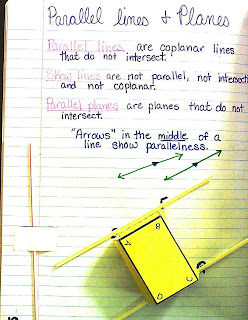 Parallel lines + Planes
Parallel lines are coplanar lines
that do not intersect.
Skew lines are not parallel, not intersecti
and not coplanar.
Parallel planes are planes that do not
intersect.
"Arrows" in the middle of a
line show parallelness.
A
B
C
D